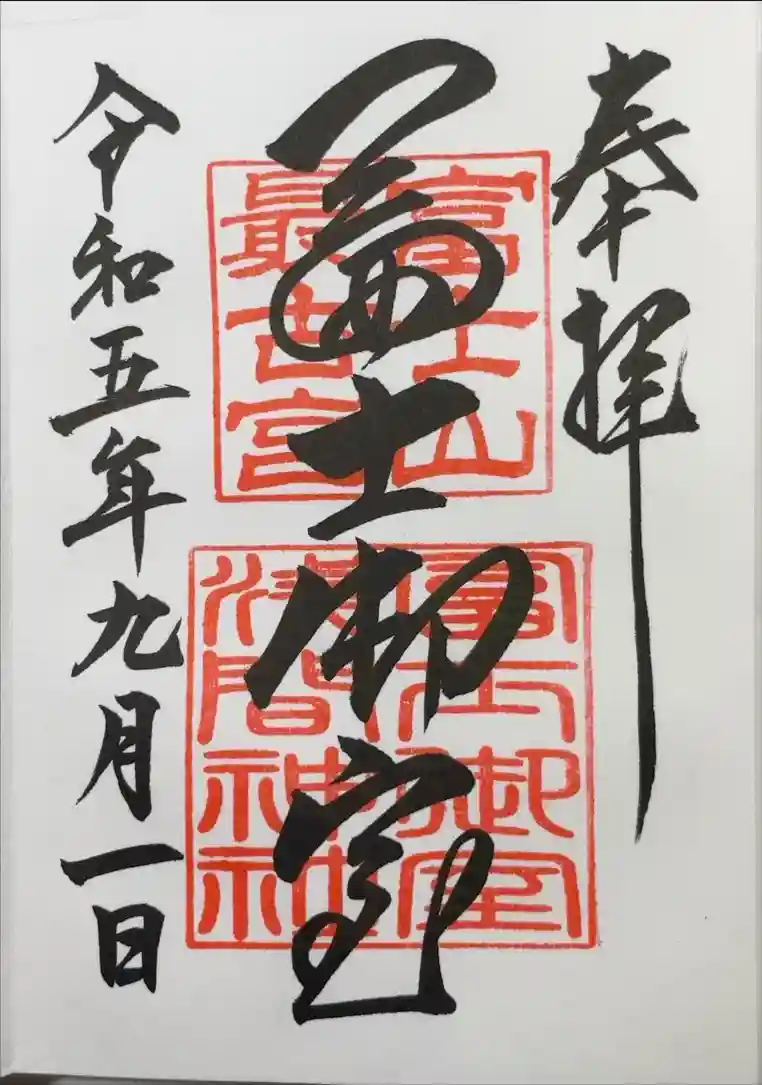 奉拝
富士山
最古宮
富士御室
富士御室
浅間神社
令和五年九月一日